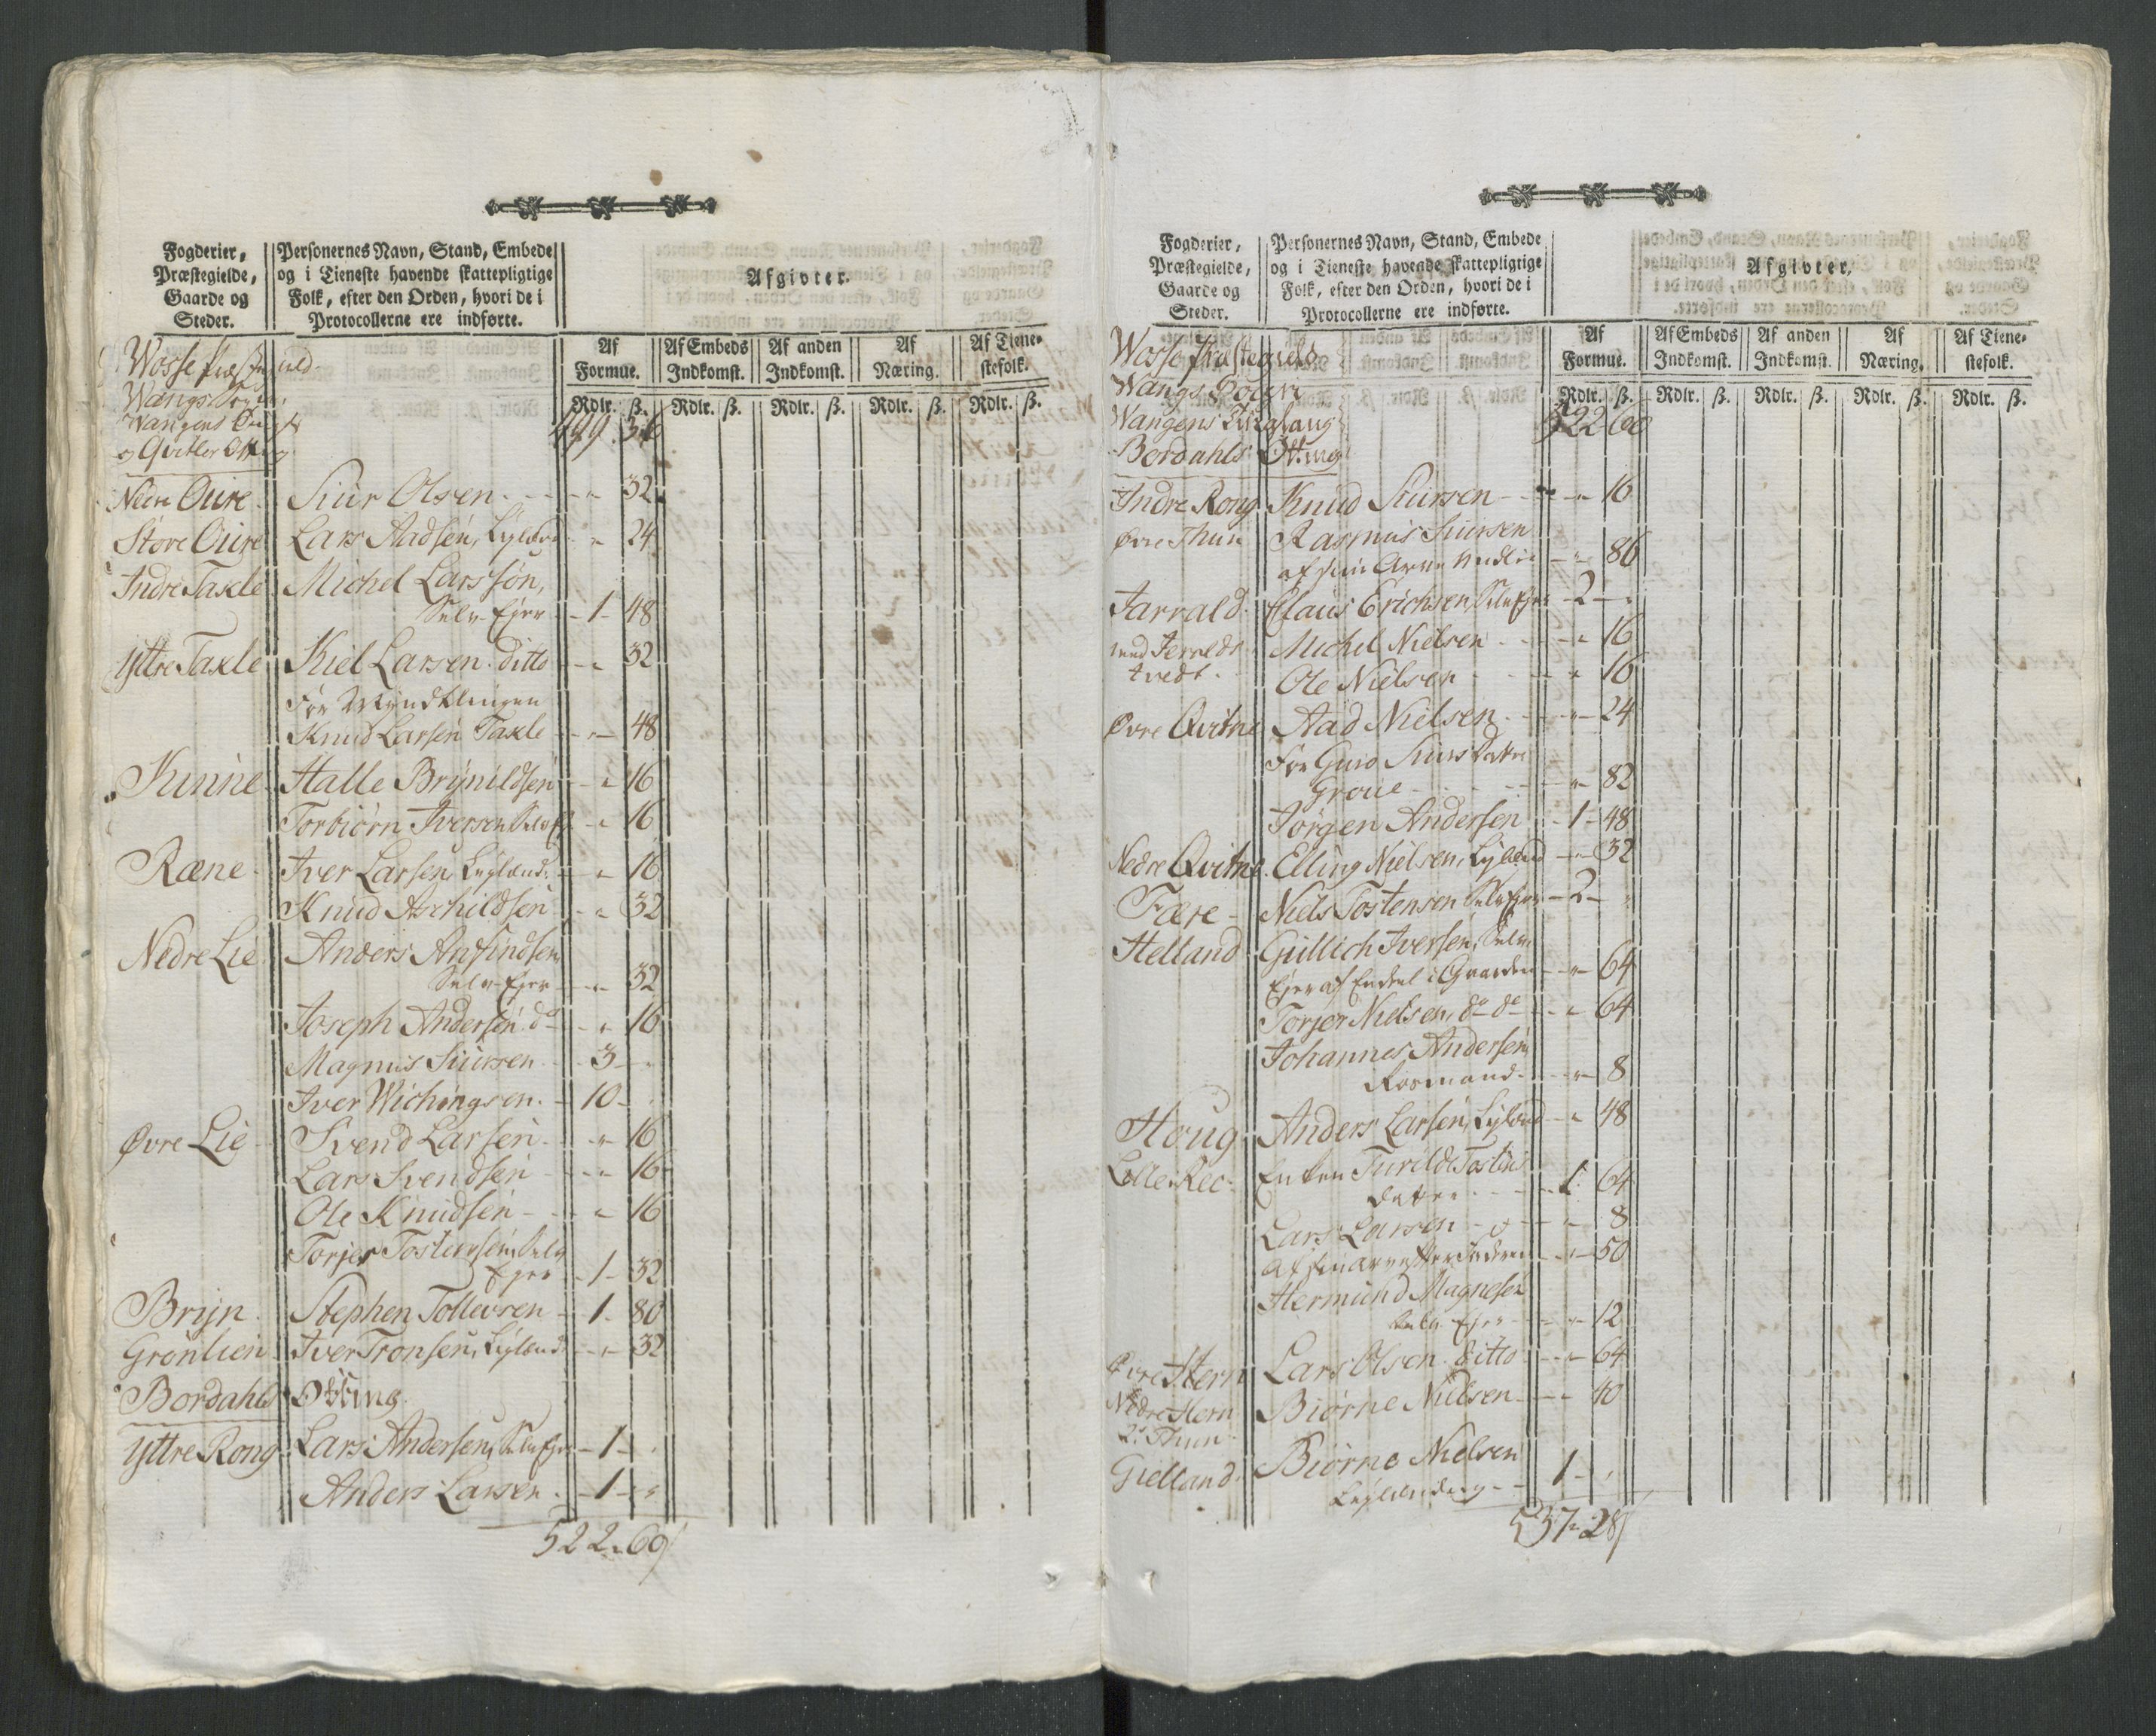 Fogderier, Præstegielde, Gaarde og Steder.
Personernes Navn, Stand, Embede og i Tieneste havende skattepligtige Folk, efter den Orden, hvori de i Protocollerne ere indførte.
Afgivter.
Af Formue. Af Embeds Indkomst. Af anden Indkomst. Af Næring. Af Tienestefolk.
Rdlr. ß. Rdlr. ß. Rdlr. ß. Rdlr. ß. Rdlr. ß.
Wosse Præstegield
Wangs Sogn,
Wangens
og Qvitler Otting
499. 36
Nedre Oure Siur Olsen - " 32
Store Oure Lars Aadsen, Leylænd. " 24
Indre Taxle Michel Larssøn,
Selv-Ejer - 1 - 48
Yttre Taxle Kiel Larsen ditto - " 32
For Myndtlingen
Knud Larsen Taxle - " - 48
Kinne Halle Brynildsen - " 16
Torbiørn Iversen Selvej. - " 16
Ræne Iver Larsen Leylænd. - " 16
Knud Aschildsen - " 32
Nedre Lie Anders Anfindsen
Selv-Ejer - " 32
Joseph Andersen do - " 16
Magnus Siursen - 3 - "
Iver Wichingsen - 10 - "
Øvre Lie Svend Larsen - " 16
Lars Svendsen - " 16
Ole Knudsen - " 16
Torjer Tostensen, Selv
Ejer - 1 - 32
Bryn Stephen Tollevsen - 1 - 80
Grønlien Iver Tronsen, Leylænd. - " 32
Bordahls Otting.
Yttre Rong Lars Andersen, Selv Ejer - 1 - "
Anders Larsen - 1 - "
522 - 60
Fogderier, Præstegielde, Gaarde og Steder.
Personernes Navn, Stand, Embede og i Tieneste havende skattepligtige Folk, efter den Orden, hvori de i Protocollerne ere indførte.
Afgivter.
Af Formue. Af Embeds Indkomst. Af anden Indkomst. Af Næring. Af Tienestefolk.
Rdlr. ß. Rdlr. ß. Rdlr. ß. Rdlr. ß. Rdlr. ß.
Wosse Præstegield
Wangs Sogn
Wangens Tinglaug
Bordahls Otting
522 60
Indre Rong Knud Siursen - " 16
Øvre Thun Rasmus Siursen
af sin Arve Midler - " 86
Jarrald Claus Erichsen, Selv Ejer - 2 - "
med Jeralds Michel Nielsen - " 16
tvedt. Ole Nielsen - " 16
Øvre Qvitne Aad Nielsen - " 24
For Guro Siurs Datter
Groue - " 82
Jørgen Andersen - 1 - 48
Nedre Qvitne Elling Nielsen, Leylænd - " 32
Fære Niels Tostensen Selv Ejer - 2 - "
Helland Gullich Iversen, Selv
Ejer af Endeel i Gaarden - " 64
Torjer Nielsen, do do - " 64
Johannes Andersen,
- " 8
Houg Anders Larsen, Leylænd - " 48
Lille Ree Enken Turild Tostens
datter - 1 64
Lars Larsen - " 8
af sin arv efter Faderen - " 50
Hermund Magnesen
Selv Ejer - " 12
Øvre Hern Lars Olsen ditto - " 64
Nedre Hern Biørne Nielsen - " 40
Thun
Gielland Biørne Nielsen
Leylænding - 1 - "
537 - 28